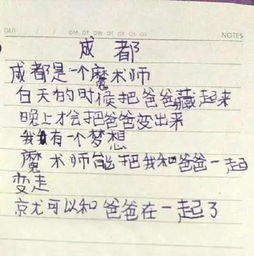 DATE
NOTES
成都
成都是一个魔术师
白天的时候把爸爸藏起来
晚上才会把爸爸变出来
我有一个梦想
魔术师能把我和爸爸一起
变走
京尤可以和爸爸在一起了